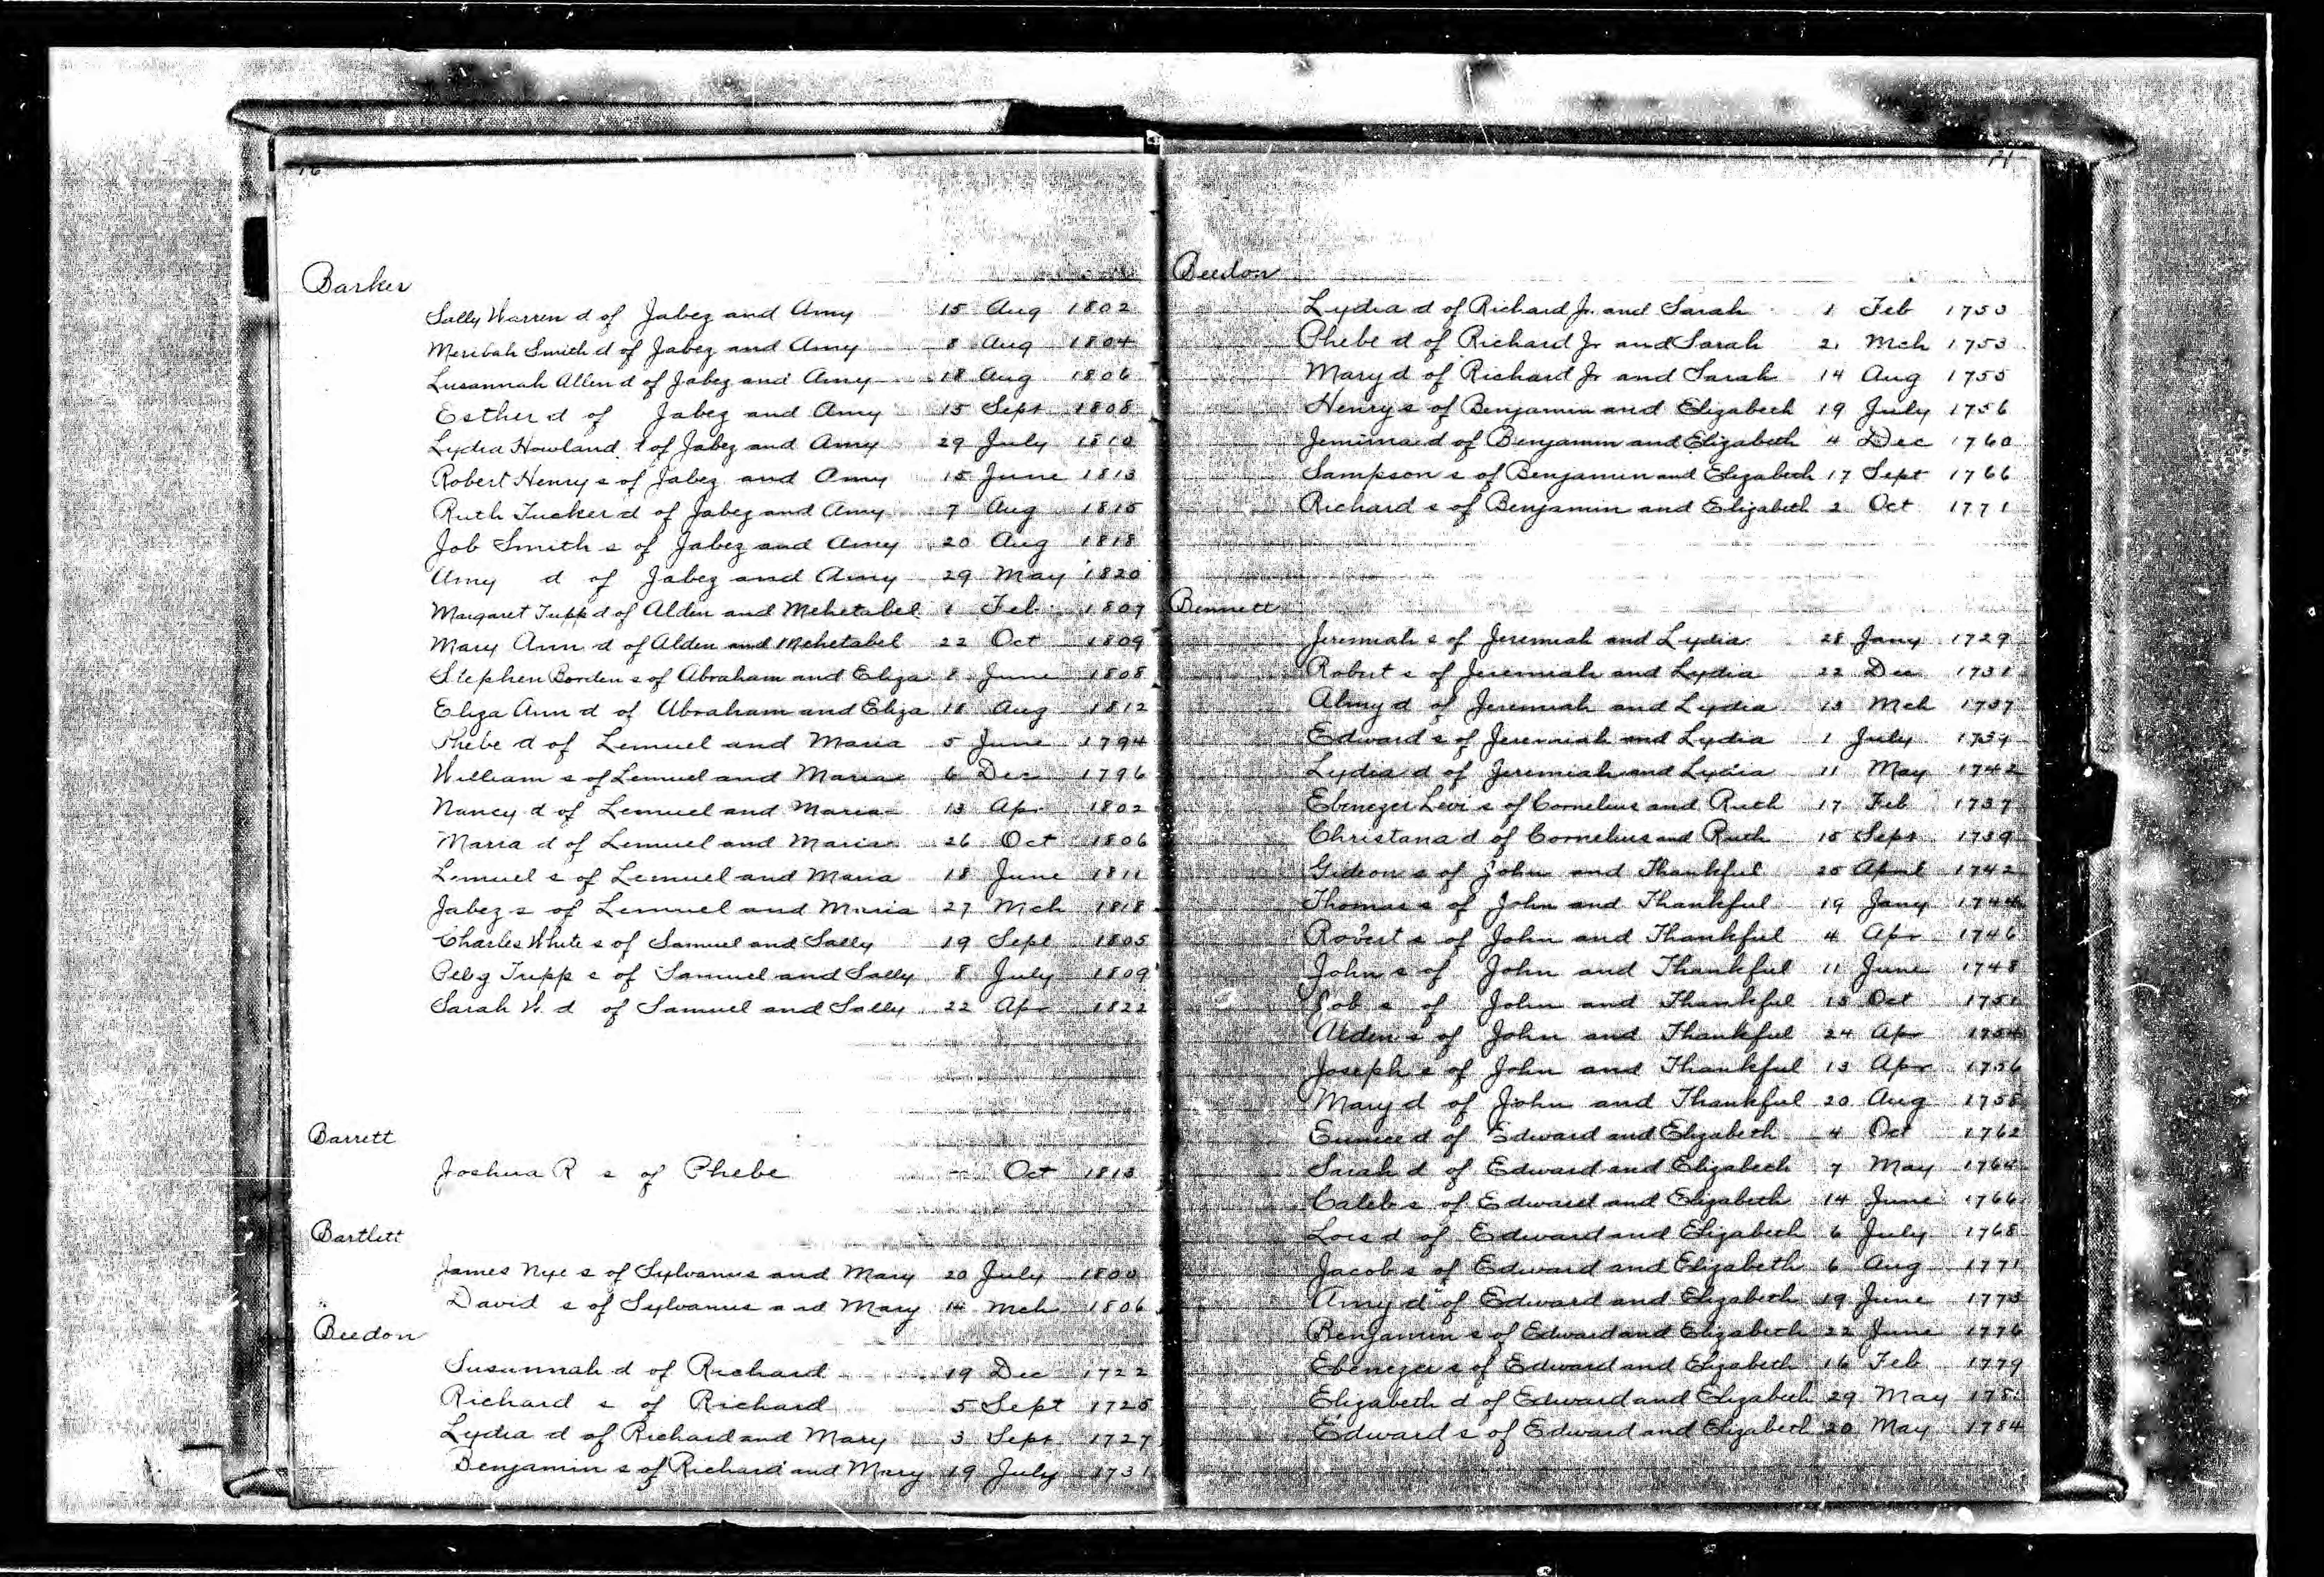 16
Barker
Sally Warren d of Jabez and Amy 15 Aug 1802
Meribah Smith d of Jabez and Amy 8 Aug 1804
Lusannah Allen d of Jabez and Amy 18 Aug 1806
Esther d of Jabez and Amy 15 Sept 1808
Lydia Howland d of Jabez and Amy 29 July 1810
Robert Henry s of Jabez and Amy 15 June 1813
Ruth Tucker d of Jabez and Amy 7 Aug 1815
Job Smith s of Jabez and Amy 20 Aug 1818
Amy d of Jabez and Amy 29 May 1820
Margaret Tripp d of Alden and Mehetabel 1 Feb 1807
Mary Ann d of Alden and Mehetabel 22 Oct 1809
Stephen Borden s of Abraham and Eliza 8 June 1808
Eliza Ann d of Abraham and Eliza 18 Aug 1812
Phebe d of Lemuel and Maria 5 June 1794
William s of Lemuel and Maria 6 Dec 1796
Nancy d of Lemuel and Maria 13 Apr 1802
Maria d of Lemuel and Maria 26 Oct 1806
Lemuel s of Lemuel and Maria 18 June 1811
Jabez s of Lemuel and Maria 27 Mch 1818
Charles White s of Samuel and Sally 19 Sept 1805
Peleg Tripp s of Samuel and Sally 8 July 1809
Sarah W. d of Samuel and Sally 22 Apr 1822
Barrett
Joshua R s of Phebe — Oct 1813
Bartlett
James Nye s of Sylvanus and Mary 20 July 1800
David s of Sylvanus and Mary 14 Mch 1806
Beedon
Susannah d of Richard 19 Dec 1722
Richard s of Richard 5 Sept 1725
Lydia d of Richard and Mary 3 Sept 1727
Benjamin s of Richard and Mary 19 July 1731
Beedon
Lydia d of Richard Jr. and Sarah 1 Feb 1753
Phebe d of Richard Jr and Sarah 21 Mch 1753
Mary d of Richard Jr and Sarah 14 Aug 1755
Henry s of Benjamin and Elizabeth 19 July 1756
Jemima d of Benjamin and Elizabeth 4 Dec 1760
Sampson s of Benjamin and Elizabeth 17 Sept 1766
Richard s of Benjamin and Elizabeth 2 Oct 1771
Bennett
Jeremiah s of Jeremiah and Lydia 28 Jany 1729
Robert s of Jeremiah and Lydia 22 Dec 1731
Almy d of Jeremiah and Lydia 13 Mch 1737
Edward s of Jeremiah and Lydia 1 July 1739
Lydia d of Jeremiah and Lydia 11 May 1742
Ebenezer Levi s of Cornelius and Ruth 17 Feb 1737
Christana d of Cornelius and Ruth 15 Sept 1739
Gideon s of John and Thankful 25 April 1742
Thomas s of John and Thankful 19 Jany 1744
Robert s of John and Thankful 4 Apr 1746
John s of John and Thankful 11 June 1748
Job s of John and Thankful 13 Oct 1751
Alden s of John and Thankful 24 Apr 1754
Joseph s of John and Thankful 13 Apr 1756
Mary d of John and Thankful 20 Aug 1758
Eunice d of Edward and Elizabeth 4 Oct 1762
Sarah d of Edward and Elizabeth 7 May 1764
Caleb s of Edward and Elizabeth 14 June 1766
Lois d of Edward and Elizabeth 6 July 1768
Jacob s of Edward and Elizabeth 6 Aug 1771
Amy d of Edward and Elizabeth 19 June 1773
Benjamin s of Edward and Elizabeth 22 June 1776
Ebenezer s of Edward and Elizabeth 16 Feb 1779
Elizabeth d of Edward and Elizabeth 29 May
Edward s of Edward and Elizabeth 20 May 1784